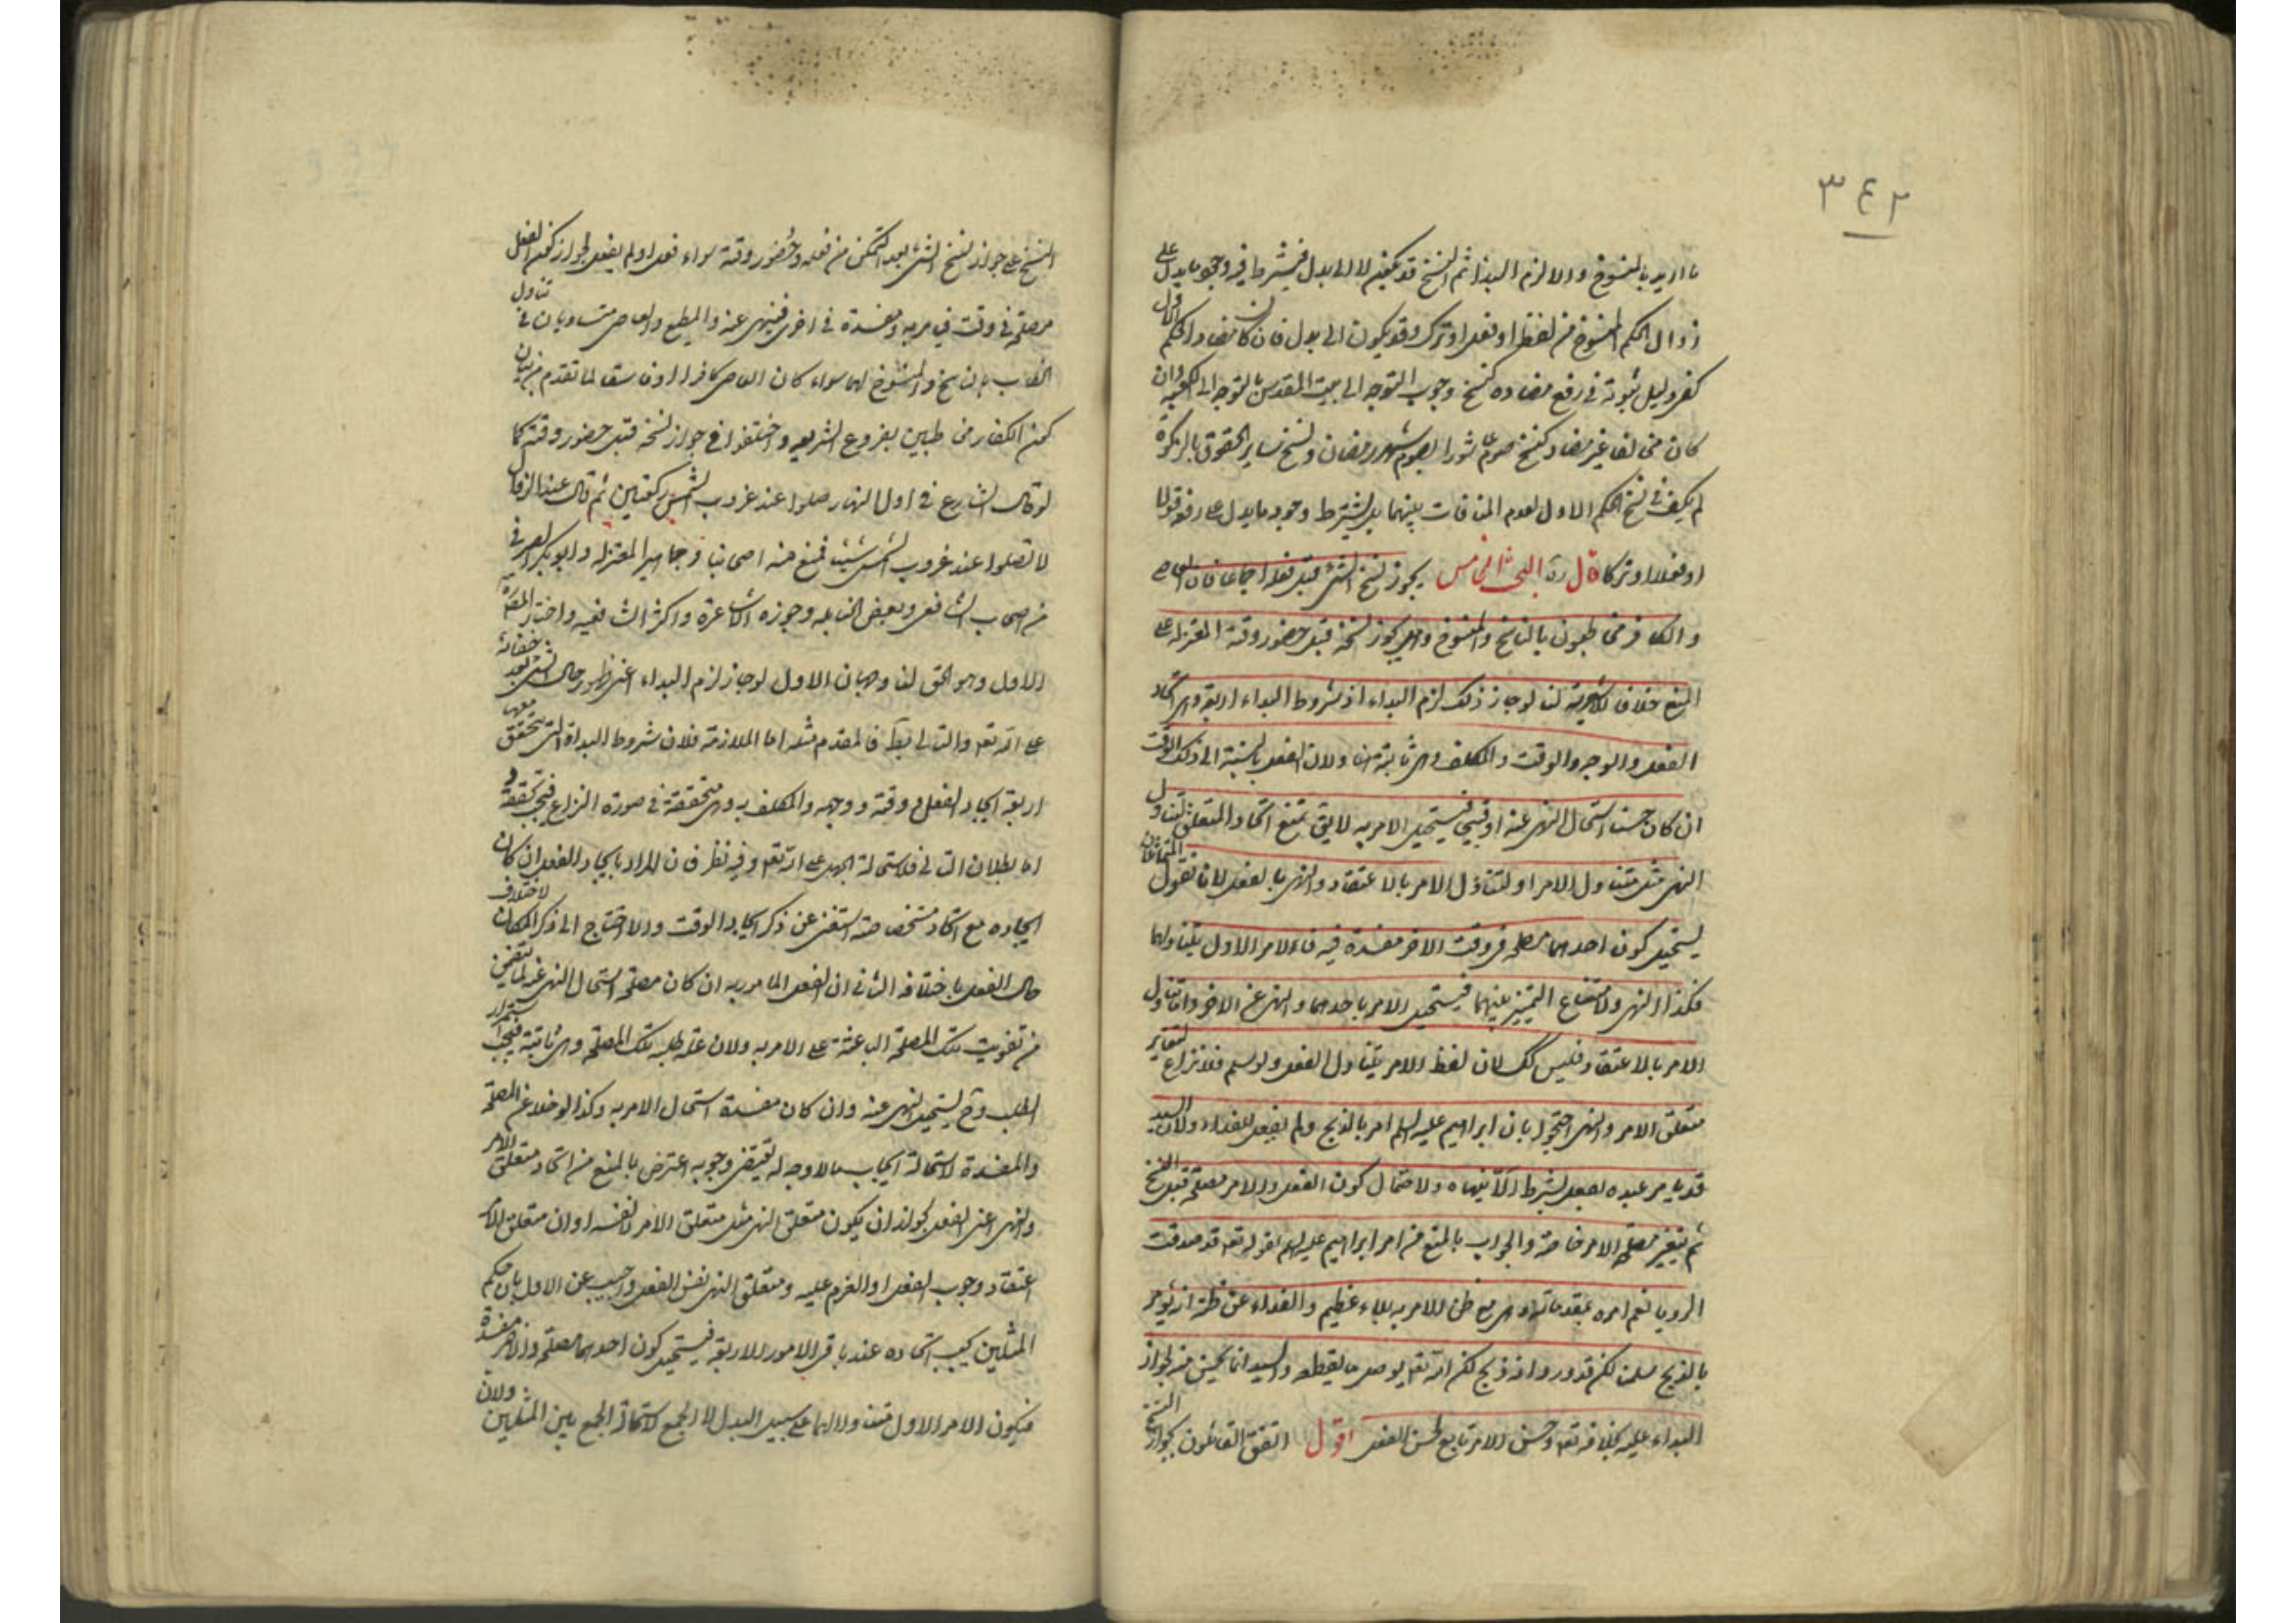 ٣٤٢
ما اريد بالمنسوخ والا لزم البدا ثم النسخ قد يكون لا الى بدل فيشترط فيه وجود ما يدل على
زوال الحكم المنسوخ من لفظ او فعل او ترك وقد يكون الى بدل فان كان مضادا لحكم الاول
كفى دليل ثبوته في رفع مضاده كنسخ وجوب التوجه الى بيت المقدس بالتوجه الى الكعبة وان
كان مخالفا غير مضاد كنسخ صوم عاشورا بصوم شهر رمضان ونسخ ساير الحقوق بالزكوة
لم يكف في نسخ الحكم الاول لعدم المنافات بينهما بل يشترط وجود ما يدل على رفعه قولا
او فعلا او تركا قال ره البحث الخامس يجوز نسخ الشئ قبل فعله اجماعا فان العاصي
والكافر مخاطبون بالناسخ والمنسوخ وهل يجوز نسخه قبل حضور وقته المعتزلة على
المنع خلافا للاشعرية لنا لوجاز ذلك لزم البداء اذ شروط البداء اربعة وهي اتحاد
الفعل والوجه والوقت والمكلف وهي ثابتة هنا ولان الفعل بالنسبة الى ذلك الوقت
ان كان حسنا استحال النهي عنه او قبيحا فيستحيل الامر به لا يق نمنع اتحاد المتعلق لتناول
النهي مثل متناول الامر او لتناول الامر بالاعتقاد والنهي بالفعل لانا نقول المتماثلان
يستحيل كون احدهما مصلحة في وقت الاخر مفسدة فيه فالامر الاول يتناولهما
فكذا النهي ولامتناع التميز بينهما فيستحيل الامر باحدهما والنهي عن الاخر واما تناول
الامر بالاعتقاد فليس كك لان لفظ الامر يتناول الفعل ولو سلم فلا نزاع لتغاير
متعلق الامر والنهي احتجوا بان ابراهيم عليه السلم امر بالذبح ولم يفعل للفداء ولان السيد
قد يامر عبده بفعل بشرط الا ينهاه ولاحتمال كون الفعل والامر مصلحة قبل النسخ
ثم يتغير مصلحة الامر خاصة والجواب بالمنع من امر ابراهيم عليه السلم لقوله تعه قد صدقت
الرويا نعم امره بمقدماته وهي مع ظن الامر به بلاء عظيم والفداء عن ظنه انه يؤمر
بالذبح سلمنا لكن قد ورد انه ذبح لكن الله تعه يوصل ما يقطعه والسيد انما يحسن منه لجواز
البداء عليه بخلافه تعه وحسن الامر تابع لحسن الفعل اقول اتفق القائلون بجواز النسخ
النسخ على جواز نسخ الشئ بعد التمكن من فعله وحضور وقته سواء فعل او لم يفعل لجواز كون الفعل
مصلحة في وقت فيومر به ومفسدة في اخر فينهى عنه والمطيع والعاصي متساويان في تناول
الخطاب بالناسخ والمنسوخ لهما سواء كان العاصي كافرا او فاسقا لما تقدم من بيان
كون الكفار مخاطبين بفروع الشريعه واختلفوا في جواز نسخه قبل حضور وقته كما
لو قال الشارع في اول النهار صلوا عند غروب الشمس ركعتين ثم قال عند الزوال
لا تصلوا عند غروب الشمس شيئا فمنع منه اصحابنا وجماهير المعتزله وابو بكر الصيرفي
من اصحاب الشافعي وبعض الحنابله وجوزه الاشاعرة واكثر الشافعيه واختار المصـ
الاول وهو الحق لنا وجهان الاول لوجاز لزم البداء اعني ظهور حال الشئ بعد خفائه
على الله تعه والتالي بط فالمقدم مثله اما الملازمة فلان شروط البداء التي يتحقق معها
اربعة اتحاد الفعل ووقته ووجهه والمكلف به وهي متحققة في صورة النزاع فيجب تحققه
اما بطلان التالي فلاستحالة الجهل على الله تعه وفيه نظر فان المراد باتحاد الفعل ان كان
اتحاده مع اتحاد مشخصاته استغنى عن ذكر اتحاد الوقت والا احتاج الى ذكر المكان لاختلاف
حال الفعل باختلافه الثاني ان الفعل المامور به ان كان مصلحة استحال النهي عنه لما يتضمن
من تفويت تلك المصلحة الباعثة على الامر به ولان علة طلبه تلك المصلحة وهي ثابتة فيجب استمرار
الطلب وح يستحيل النهي عنه وان كان مفسدة استحال الامر به وكذا لو خلا عن المصلحة
والمفسدة لاستحالة ايجاب ما لا وجه له يقتضي وجوبه اعترض بالمنع من اتحاد متعلق الامر
والنهي اعني الفعل لجواز ان يكون متعلق النهي مثل متعلق الامر لا نفسه او ان متعلق الامر
اعتقاد وجوب الفعل او العزم عليه ومتعلق النهي نفس الفعل واجيب عن الاول بان حكم
المثلين يجب اتحاده عند باقي الامور الاربعة فيستحيل كون احدهما مصلحة والاخر مفسدة
فيكون الامر الاول متناولا لهما على سبيل البدل لا الجمع لاستحالة الجمع بين المثلين ولان